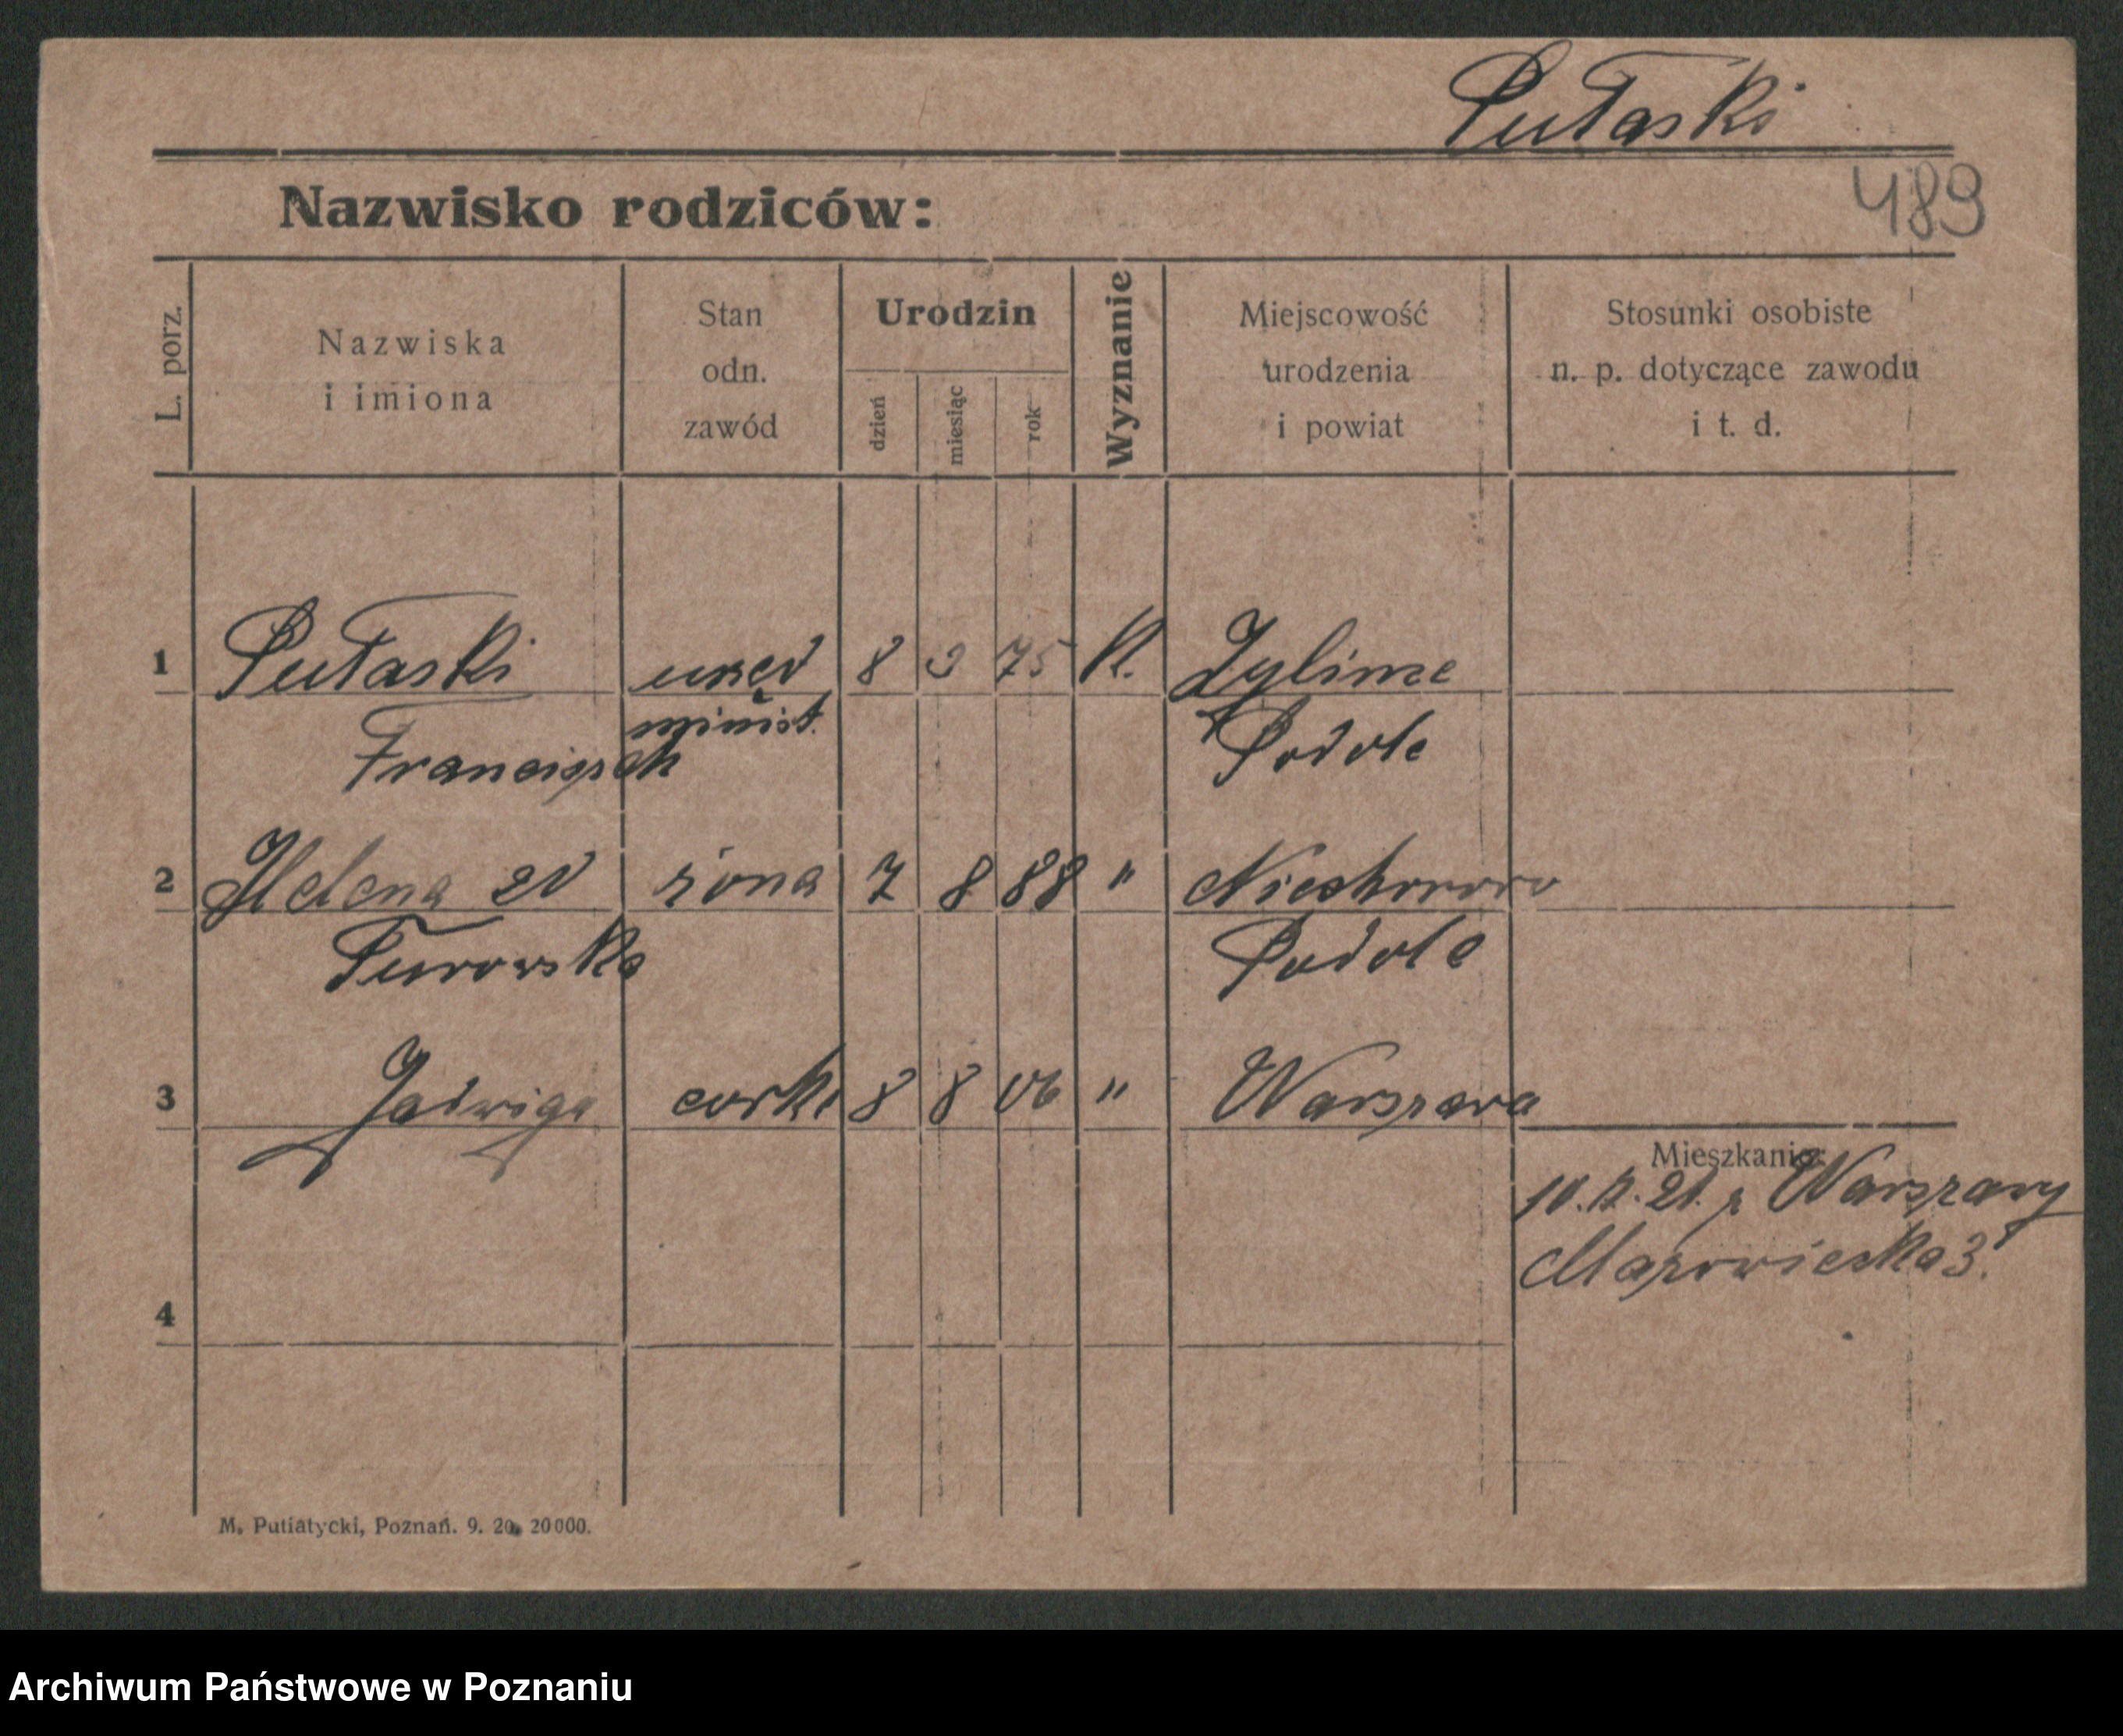 Pułaski
489
Nazwisko rodziców:
L. porz.
Nazwiska
i imiona
Stan
odn.
zawód
Urodzin
dzień
miesiąc
rok
Wyznanie
Miejscowość
urodzenia
i powiat
Stosunki osobiste
n. p. dotyczące zawodu
i t. d.
1 Pułaski urzęd 8 3 75 K.
minist. Podole
Franciszek
2 Helena żona 7 8 88 "
Turowska Podole
3 Jadwiga corka 8 8 06 " Warszawa
Mieszkanie:
21. z Warszawy
Mazowiecka 3.
4
M. Putiatycki, Poznań. 9. 20. 20000.
Archiwum Państwowe w Poznaniu